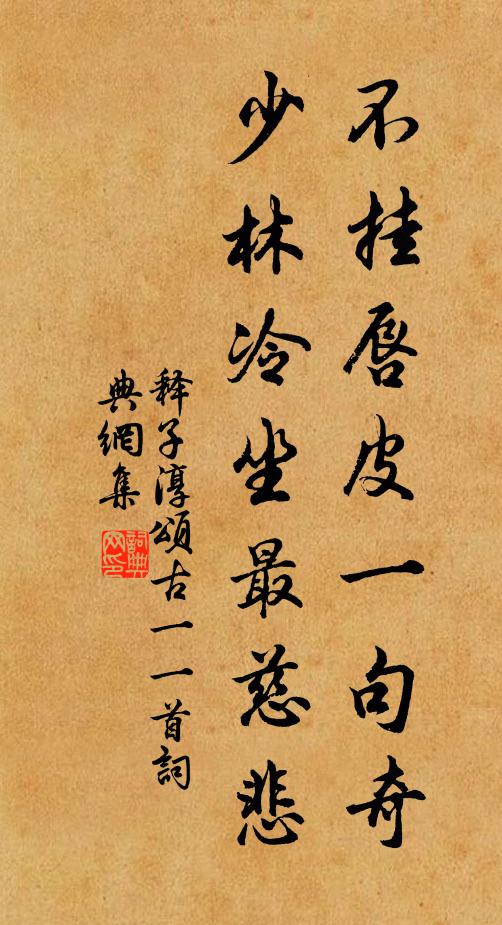 不挂唇皮一句奇
少林冷坐最慈悲
释子淳頌古一一首詞
典網集
詞典网印